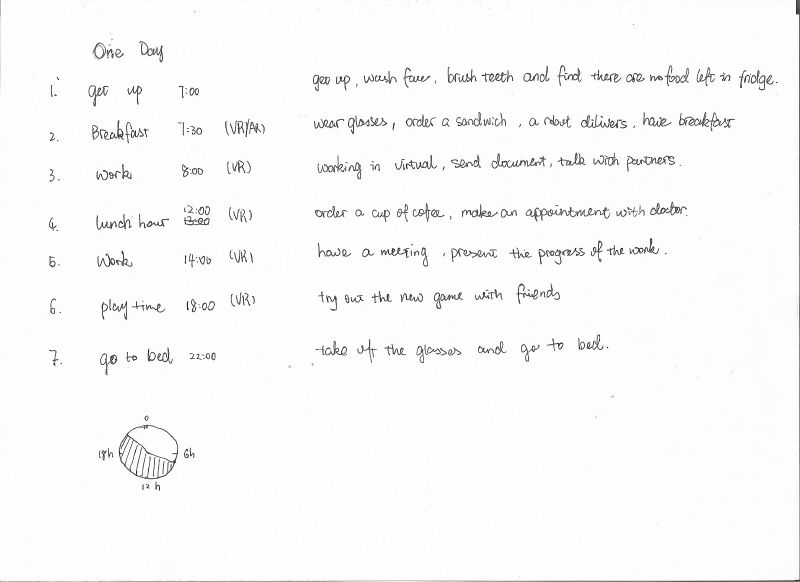 One Day
1. get up 7:00 get up, wash face, brush teeth and find there are no food left in fridge.
2. Breakfast 7:30 (VR/AR) wear glasses, order a sandwich, a robot dilivers, have breakfast
3. work 8:00 (VR) working in virtual, send document, talk with partners.
4. lunch hour 12:00 (VR) order a cup of cofee, make an appointment with doctor.
5. Work 14:00 (VR) have a meeting, present the progress of the work.
6. play time 18:00 (VR) try out the new game with friends
7. go to bed 22:00 take off the glasses and go to bed.
0
18h 6h
12 h